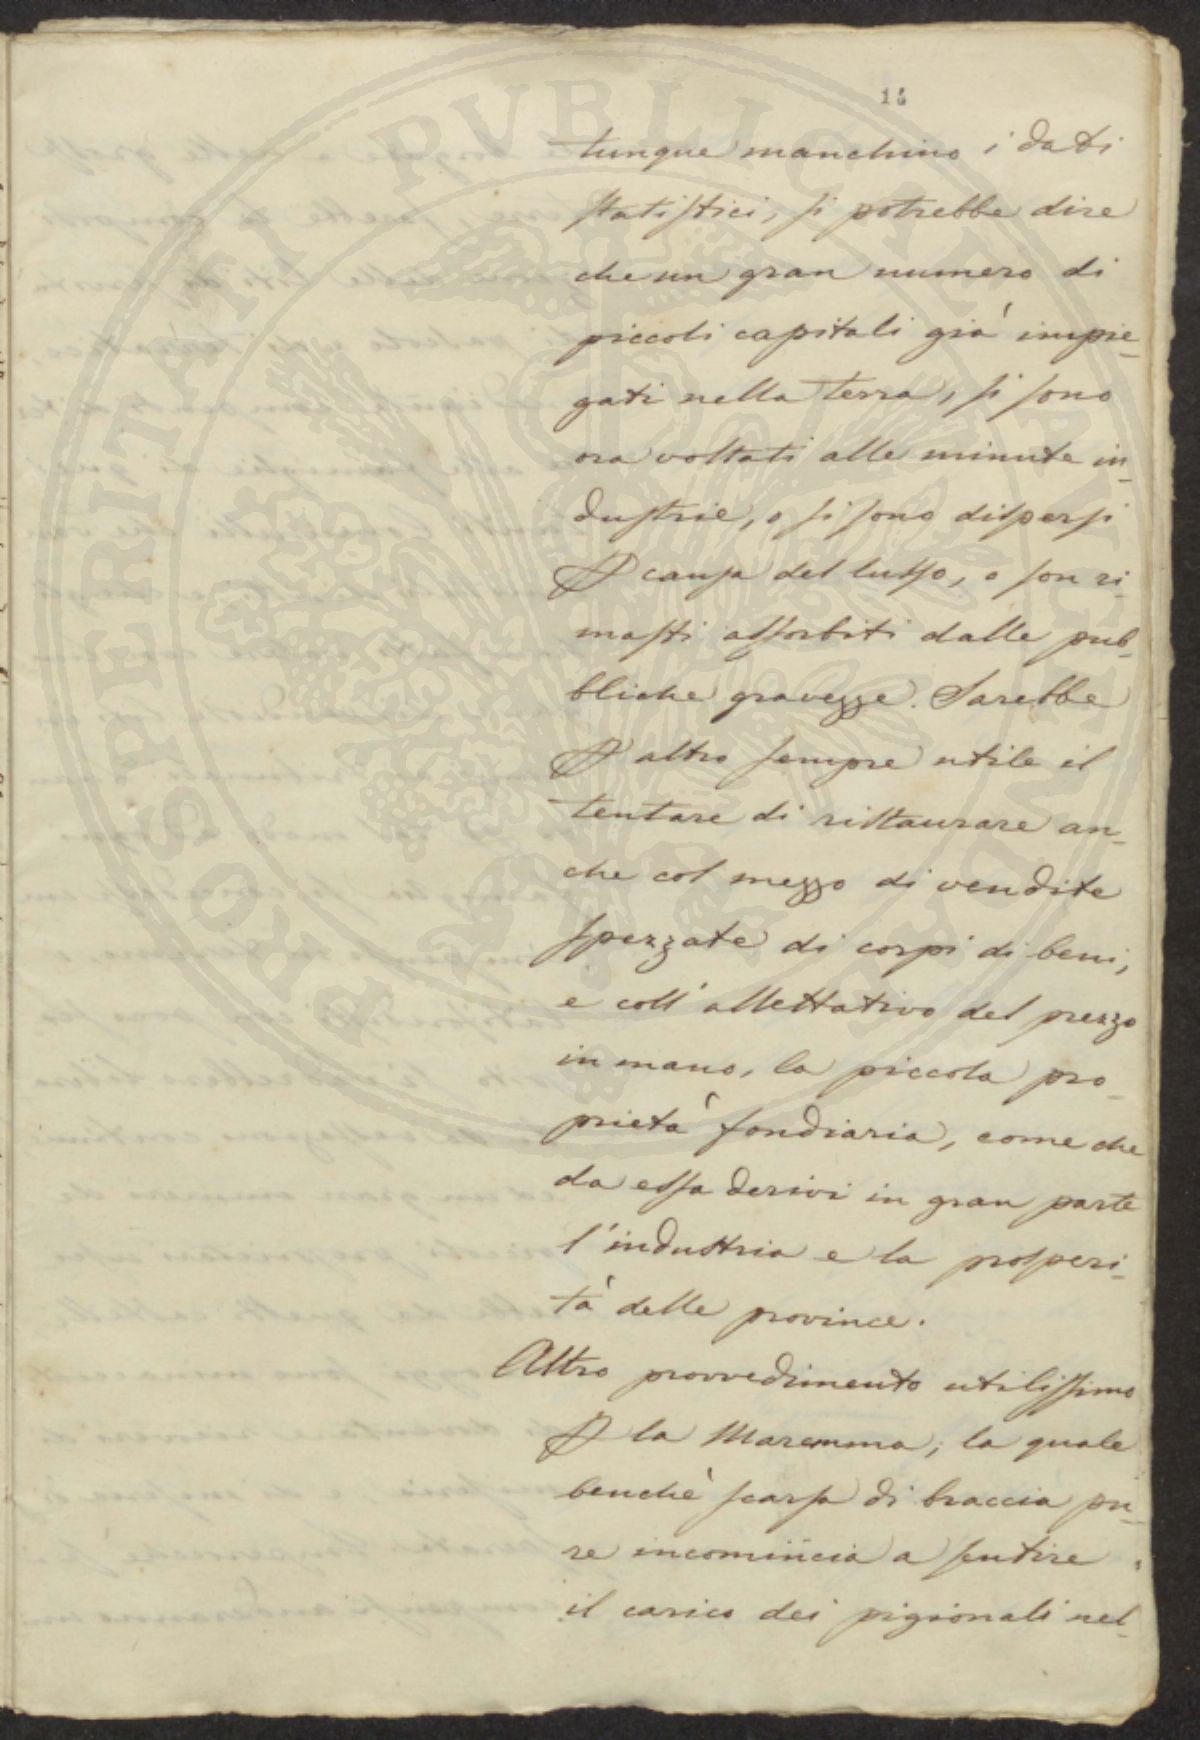 15
tunque manchino i dati
statistici, si potrebbe dire
che un gran numero di
piccoli capitali già impie-
gati nella terra, si sono
ora voltati alle minute in-
dustrie, o si sono dispersi
P causa del lusso, o son ri-
masti assorbiti dalle pub-
bliche gravezze. Sarebbe
P altro sempre utile il
tentare di ristaurare an-
che col mezzo di vendite
spezzate di corpi di beni,
e coll'allettativo del prezzo
in mano, la piccola pro-
prietà fondiaria, come che
da essa derivi in gran parte
l'industria e la prosperi-
tà delle province.
Altro provvedimento utilissimo
P la Maremma, la quale
benchè scarsa di braccia pu-
re incomincia a sentire
il carico dei pigionali nel-
PROSPERITATI PVBLICAE AVGENDAE